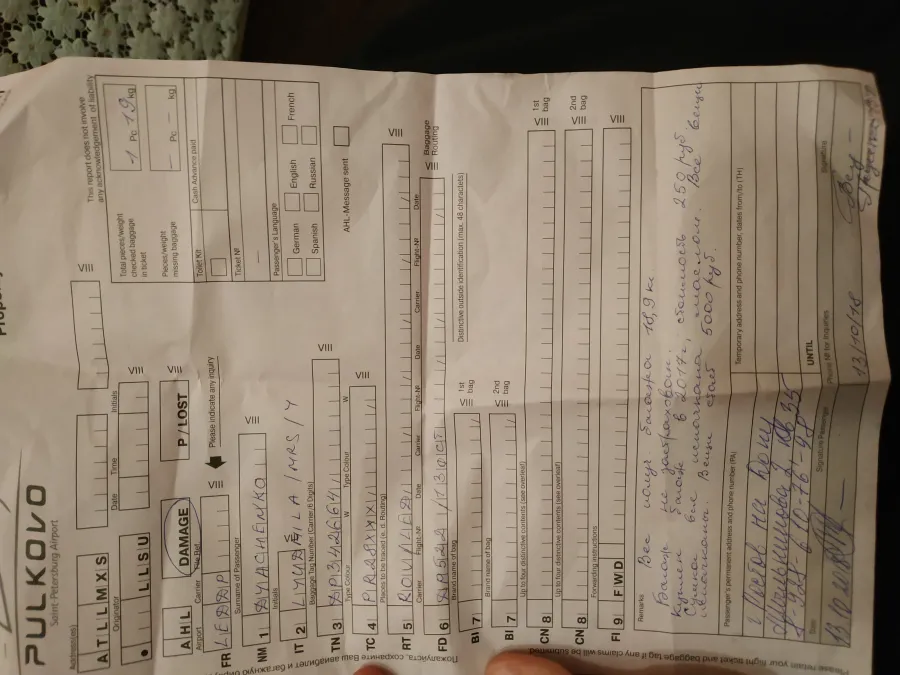 PULKOVO
Saint-Petersburg Airport
This report does not involve
any acknowledgement of liability
Addressee(s)
ATLLMXS
VIII
Originator
Date
Time
Initials
LLSU
VIII
AHL
DAMAGE
P / LOST
Please indicate any inquiry
Total pieces/weight
checked baggage
in ticket
1 Pc 19 kg
Pieces/weight
missing baggage
- Pc - kg
Toilet Kit
Cash Advance paid
Ticket №
Passenger's Language
German
English
French
Spanish
Russian
AHL-Message sent
Airport
Carrier
FR
LEDDP
VIII
Surname of Passenger
NM 1
DYACHENKO
VIII
Initials
IT 2
LYUDMILA / MRS / Y
Baggage Tag Number (Carrier/6 Digits)
TN 3
DP342664
VIII
Type Colour
W
Type Colour
W
TC 4
PR28XXX
VIII
Places to be traced (e. d. Routing)
RT 5
ROV LED
VIII
Carrier
Flight-№
Date
Carrier
Flight-№
Date
Carrier
Flight-№
Date
FD 6
VIII
Baggage
Routing
Brand name of bag
BI 7
VIII
1st
bag
Distinctive outside identification (max. 48 characters)
Brand name of bag
BI 7
VIII
2nd
bag
Up to four distinctive contents (see overleaf)
CN 8
VIII
1st
bag
Up to four distinctive contents (see overleaf)
CN 8
VIII
2nd
bag
Forwarding instructions
FI 9
FWD
VIII
Remarks
Вес всего багажа 18,9 кг
Багаж не застрахован.
Купил багаж в 2017 г, стоимость 250 руб
Сумка вся испачкана маслом. Все вещи
испачканы. Вещи стоят 5000 руб.
Passenger's permanent address and phone number (PA)
Temporary address and phone number, dates from/to (TH)
г. Ростов на Дону
UNTIL
Signature Passenger
Phone № for Inquiries
Signature
13/10/18
Пожалуйста, сохраните Ваш авиабилет и багажную бирку
Please retain your flight ticket and baggage tag if any claims will be submitted